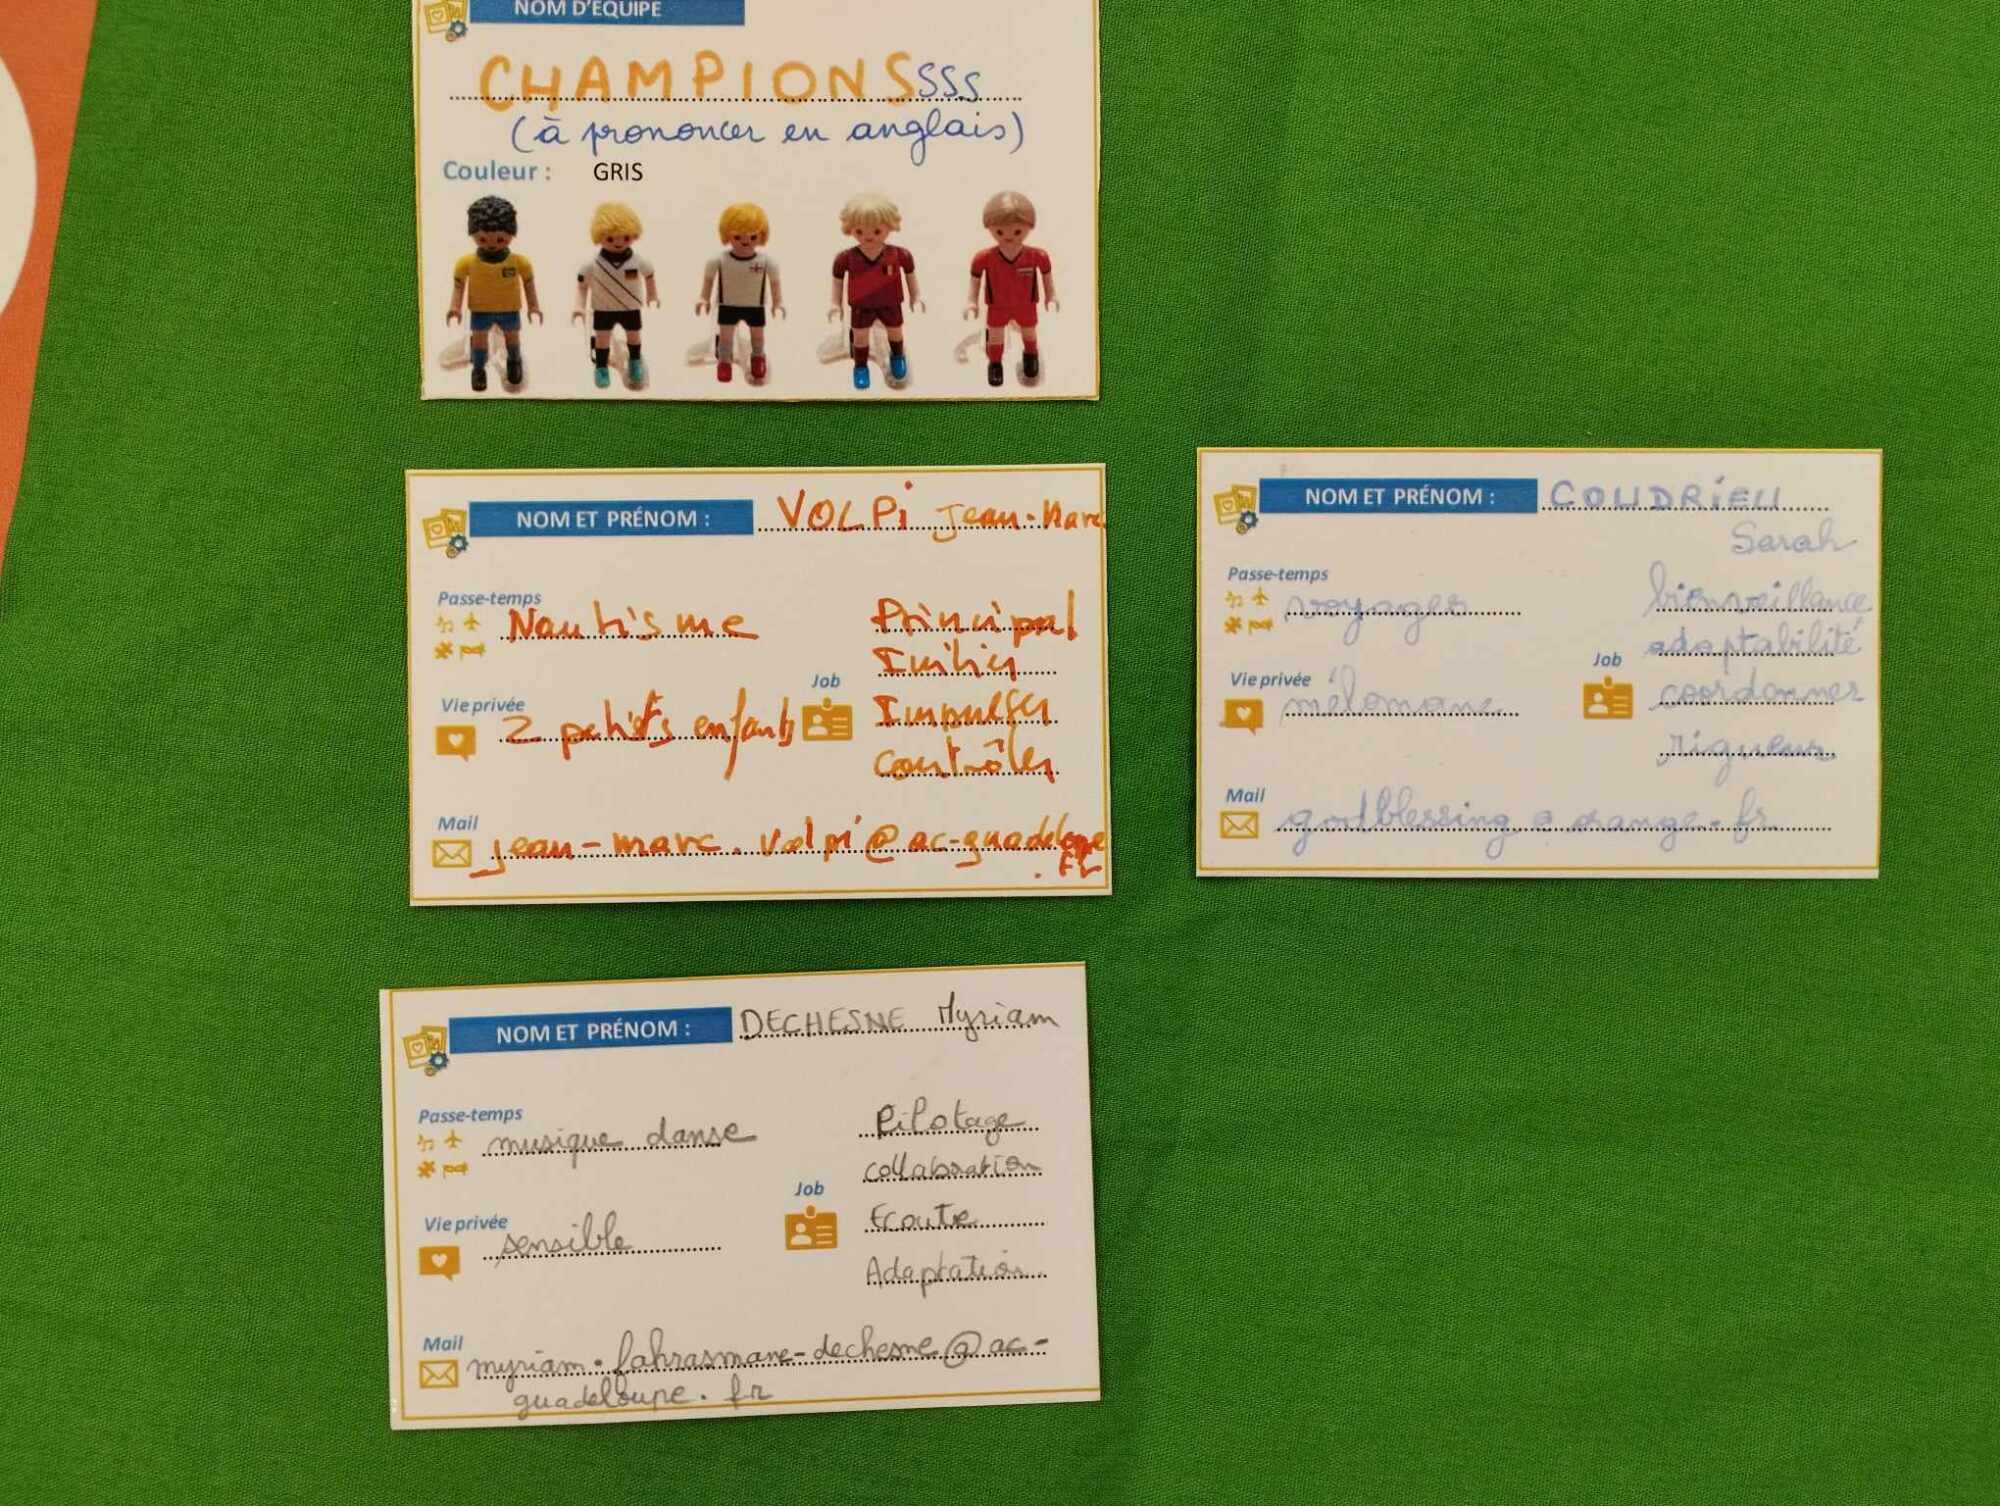 NOM D'EQUIPE
CHAMPIONSsss
(à prononcer en anglais)
Couleur : GRIS
NOM ET PRÉNOM : VOLPi Jean-Marc
Passe-temps
Nautisme
Vie privée
2 petists enfants
Job
Principal
Initier
Impulser
Contrôler
Mail
jean-marc.volpi@ac-guadeloupe
.fr
NOM ET PRÉNOM : COUDRiEU
Sarah
Passe-temps
voyages
Vie privée
mélomane
Job
bienveillance
adaptabilité
coordonner
rigueur
Mail
godblessing@orange.fr
NOM ET PRÉNOM : DECHESNE Myriam
Passe-temps
musique danse
Vie privée
sensible
Job
Pilotage
collaboration
Ecoute
Adaptation
Mail
myriam.fahrasmane-dechesne@ac-
guadeloupe.fr